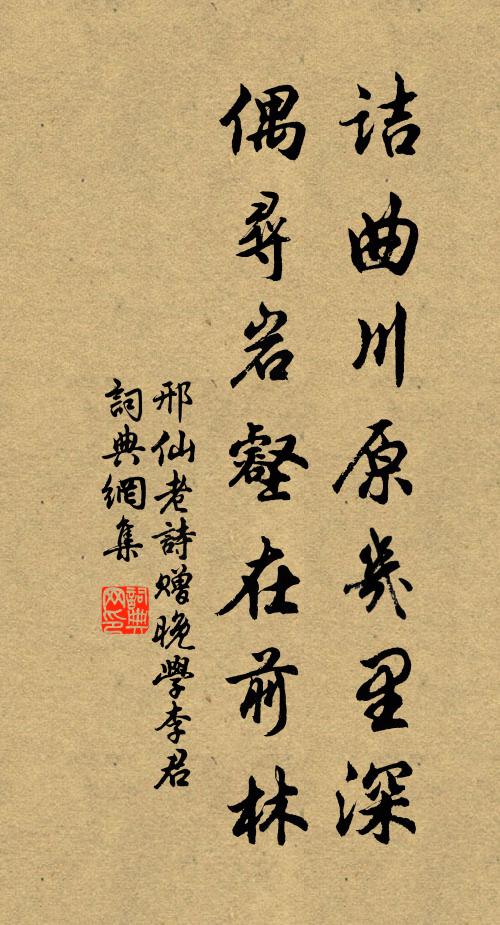 诘曲川原幾里深
偶尋岩壑在前林
邢仙老詩贈晚學李君
詞典網集
詞典网印